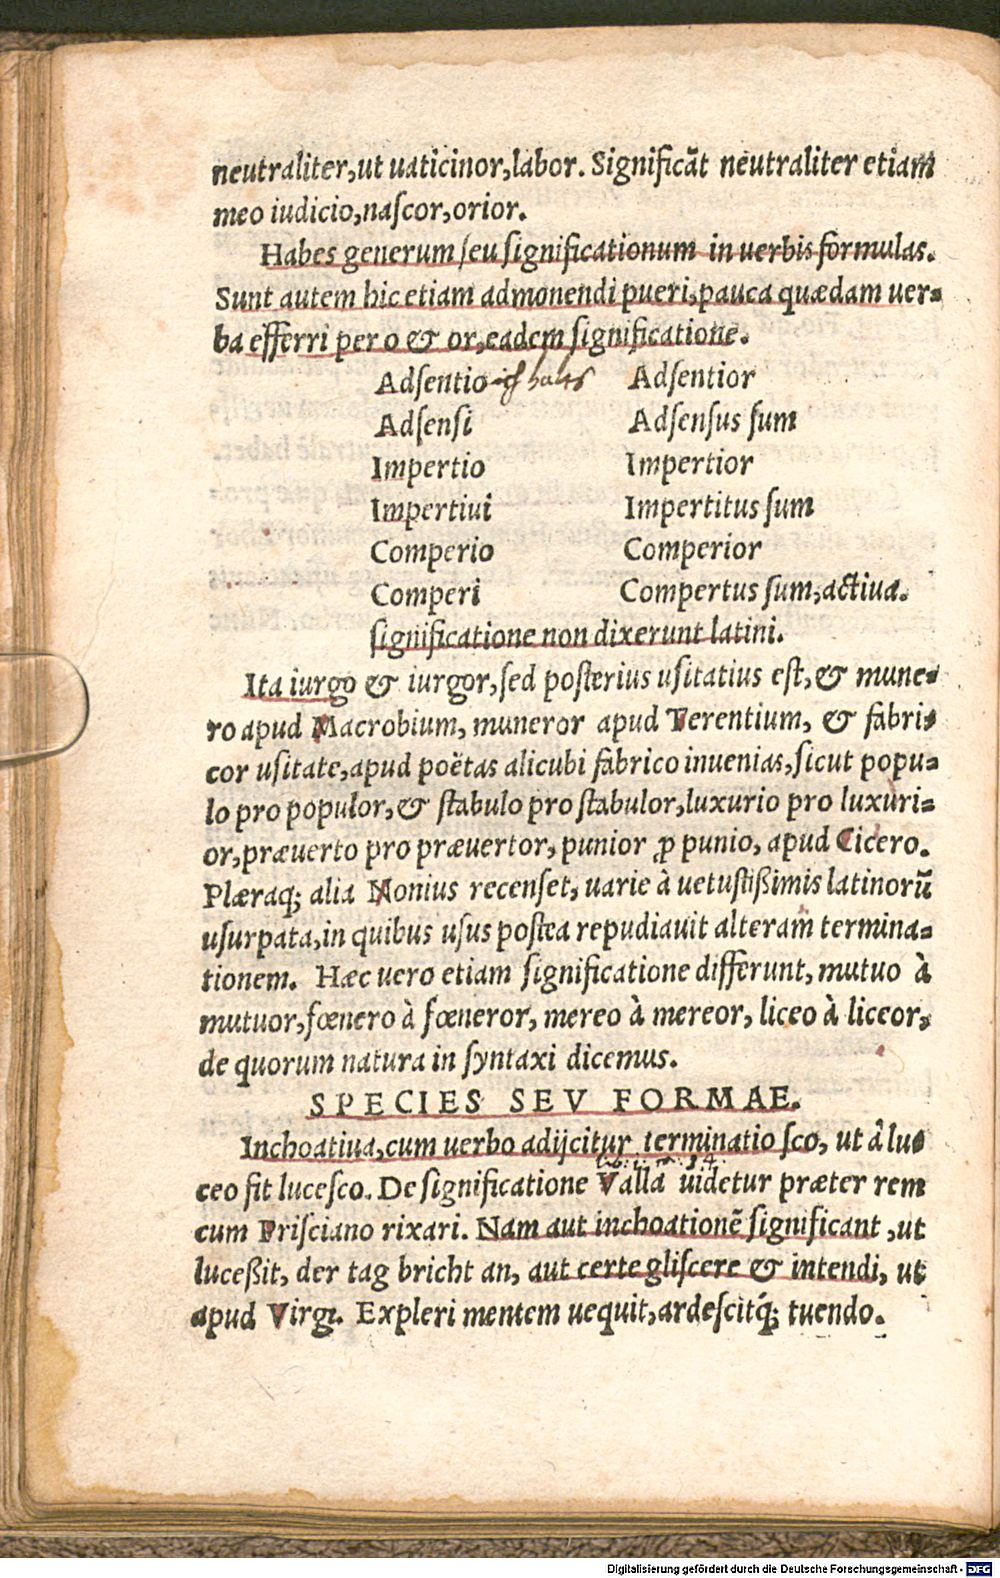 neutraliter,ut uaticinor,labor. Significāt neutraliter etiam
meo iudicio,naſcor,orior.
Habes generum ſeu ſignificationum in uerbis formulas.
Sunt autem hic etiam admonendi pueri,pauca quædam uer-
ba efferri per o & or,eadem ſignificatione.
Adſentio ich halts Adſentior
Adſenſi Adſenſus ſum
Impertio Impertior
Impertiui Impertitus ſum
Comperio Comperior
Comperi Compertus ſum,actiua.
ſignificatione non dixerunt latini.
Ita iurgo & iurgor,ſed poſterius uſitatius eſt,& mune-
ro apud Macrobium, muneror apud Terentium, & fabri-
cor uſitate,apud poëtas alicubi fabrico inuenias,ſicut popu-
lo pro populor,& ſtabulo pro ſtabulor,luxurio pro luxuri-
or,præuerto pro præuertor, punior ꝓ punio, apud Cicero.
Plæraq; alia Nonius recenſet, uarie à uetuſtißimis latinorū
uſurpata,in quibus uſus poſtea repudiauit alteram termina-
tionem. Hæc uero etiam ſignificatione differunt, mutuo à
mutuor,fœnero à fœneror, mereo à mereor, liceo à liceor,
de quorum natura in ſyntaxi dicemus.
SPECIES SEV FORMAE.
Inchoatiua,cum uerbo adijcitur terminatio ſco, ut à lu-
ceo fit luceſco. De ſignificatione Valla uidetur præter rem
cum Priſciano rixari. Nam aut inchoationē ſignificant ,ut
luceßit, der tag bricht an, aut certe gliſcere & intendi, ut
apud Virgi. Expleri mentem uequit,ardeſcitq́; tuendo.
Digitalisierung gefördert durch die Deutsche Forschungsgemeinschaft - DFG